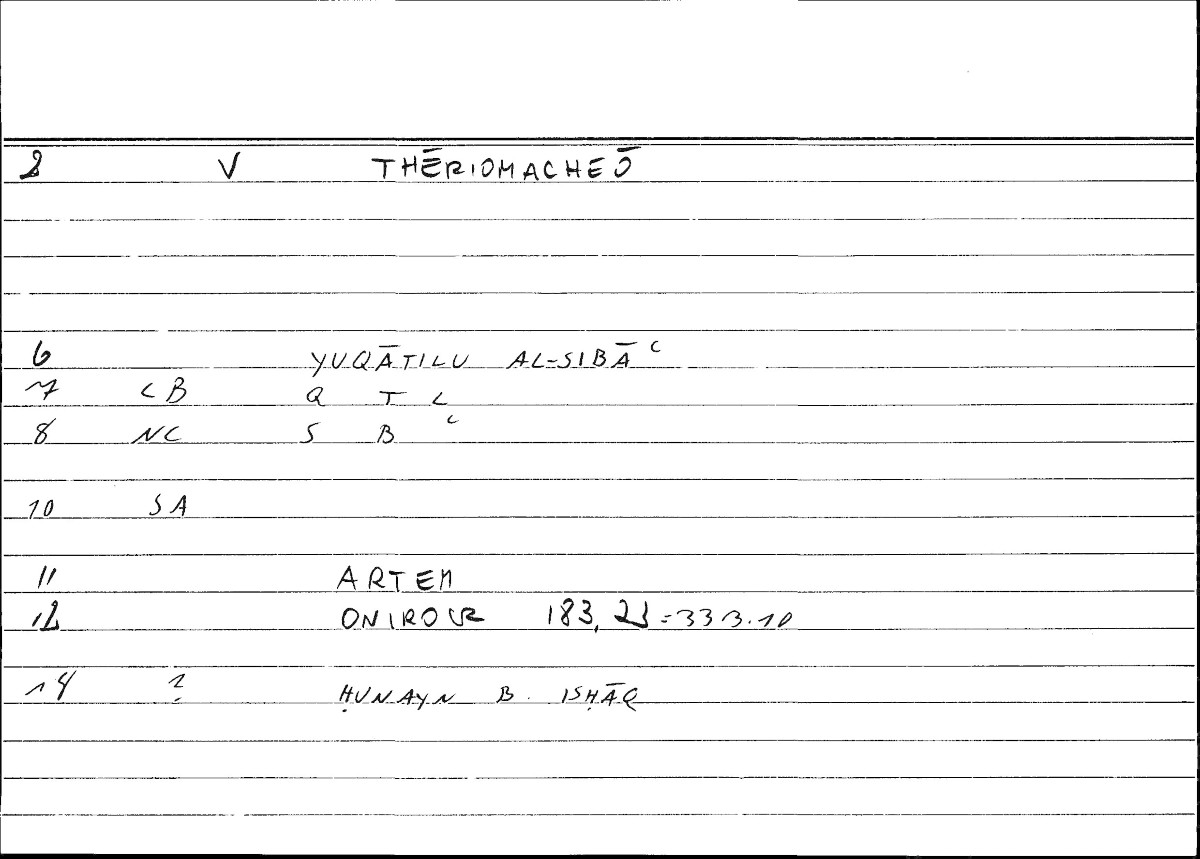 2 V THĒRIOMACHEŌ
6 YUQĀTILU AL-SIBĀʿ
7 CB Q T L
8 NC S B ʿ
10 SA
11 ARTEM
12 ONIROCR 183, 23 = 333.10
14 ? ḤUNAYN B. ISḤĀQ